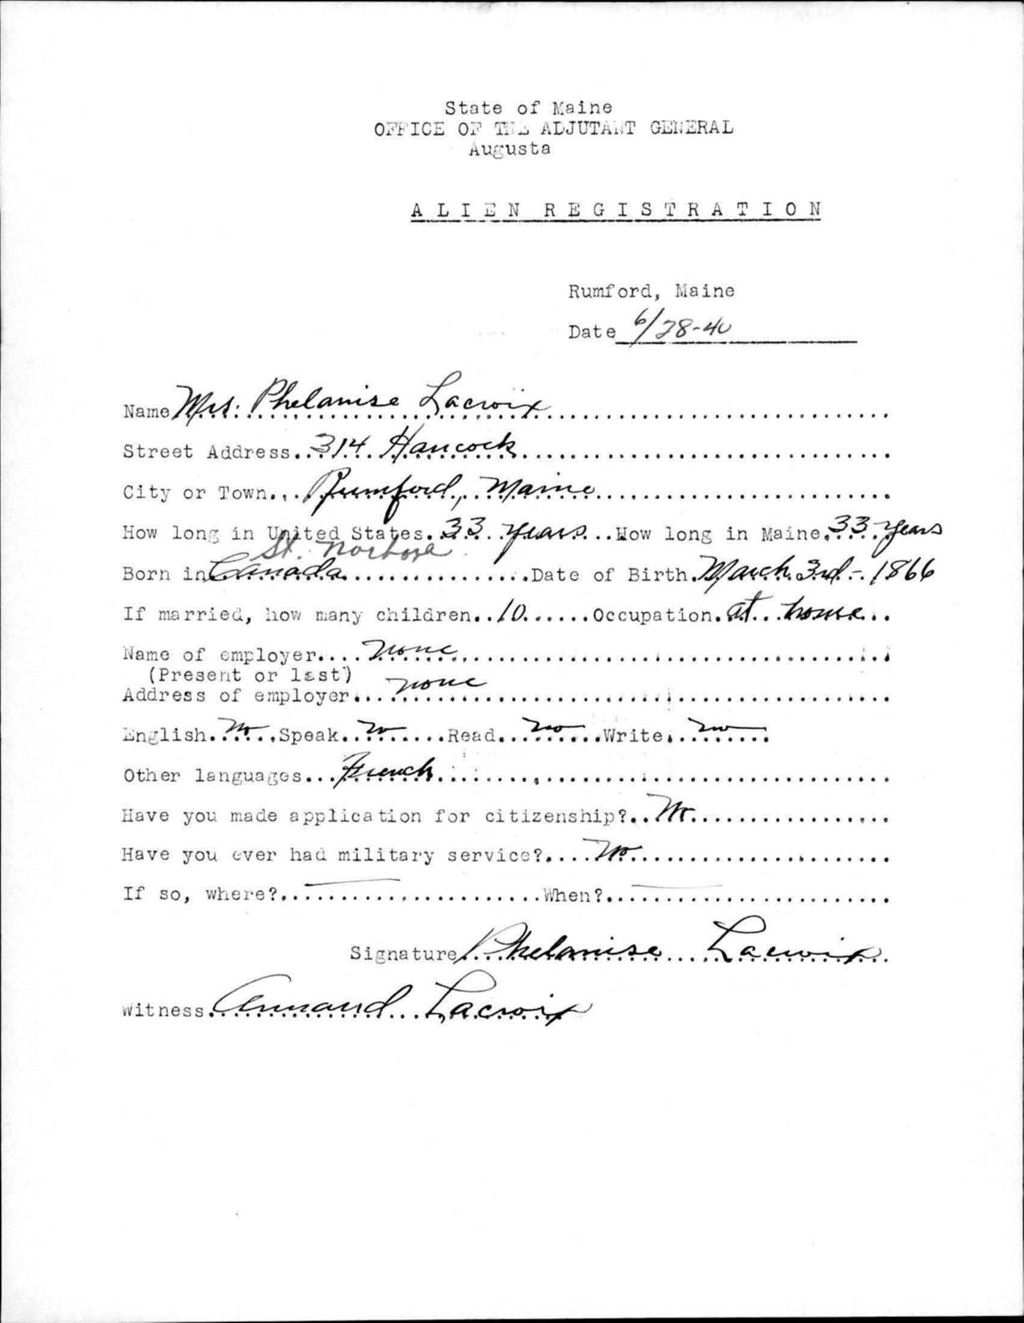 State of Maine
OFFICE OF THE ADJUTANT GENERAL
Augusta
ALIEN REGISTRATION
Rumford, Maine
Date 6/28-40
Name Mrs. Phelanise Lacroix
Street Address 314 Hancock
City or Town Rumford, Maine
How long in United States 33 years How long in Maine 33 years
St.
Born in Canada Date of Birth March 3rd - 1866
If married, how many children 10 Occupation at home
Name of employer none
(Present or last)
Address of employer none
English No Speak no Read no Write no
Other languages French
Have you made application for citizenship? No
Have you ever had military service? No
If so, where? When?
Signature Phelanise Lacroix
Witness Armand Lacroix